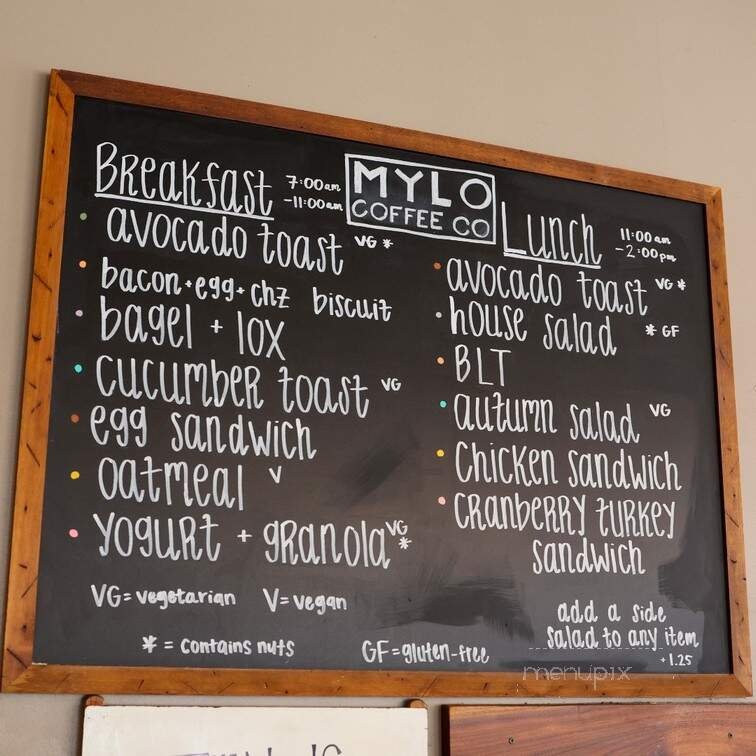 Breakfast 7:00am
-11:00am
MYLO
COFFEE CO
avocado toast VG *
bacon+egg+chz biscuit
bagel + lox
cucumber toast VG
egg sandwich
oatmeal V
yogurt + granola VG *
VG = vegetarian V = vegan
* = contains nuts GF = gluten-free
Lunch 11:00am
-2:00pm
avocado toast VG *
house salad * GF
BLT
autumn salad VG
chicken sandwich
cranberry turkey
sandwich
add a side
salad to any item
+1.25
menupix